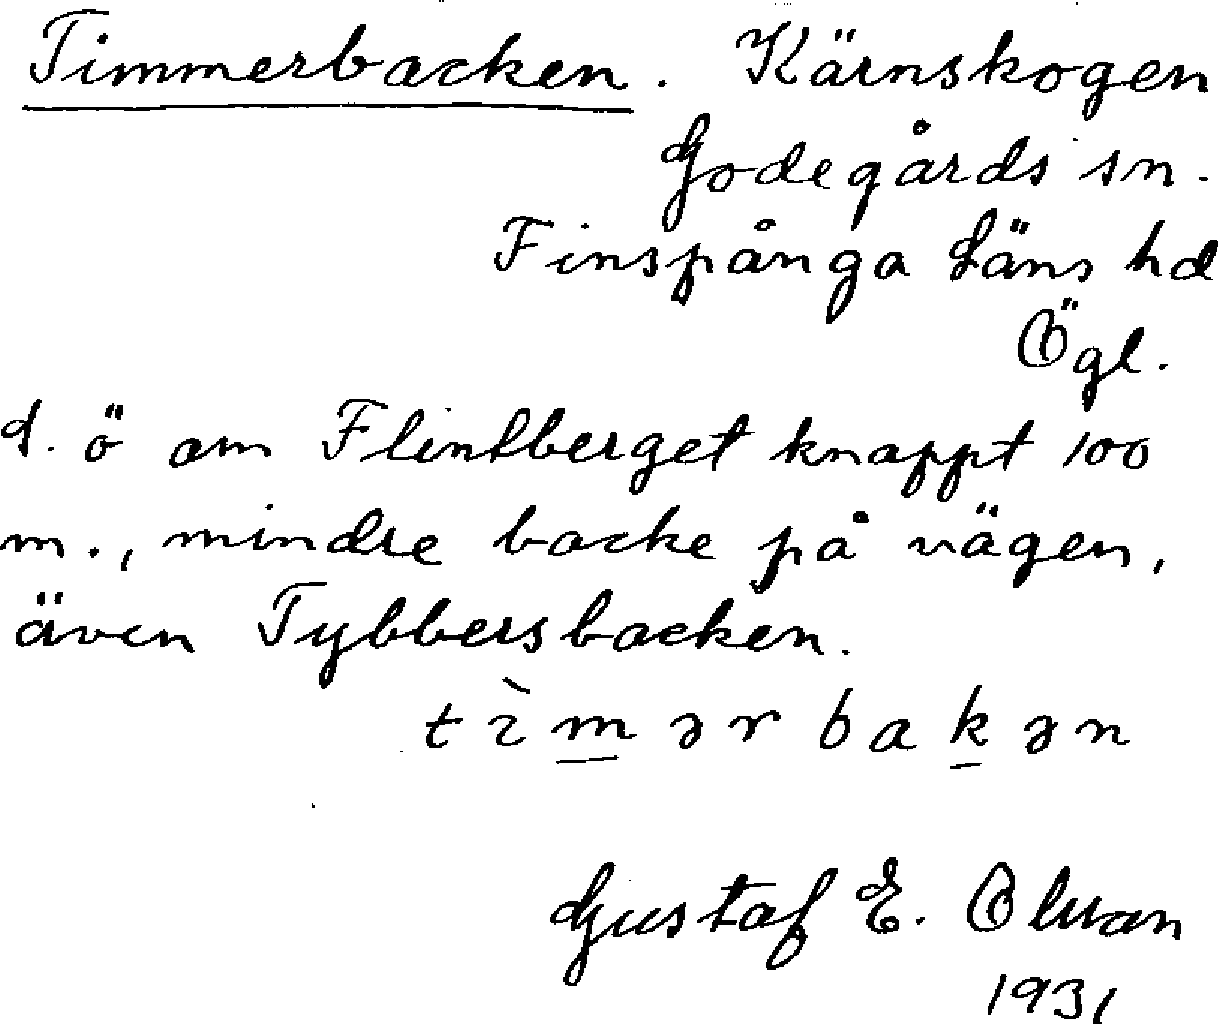 Timmerbacken. Kärnskogen
Godegårds sn.
Finspånga Läns hd
Ögl.
d. ö om Flintberget knappt 100
m., mindre backe på vägen,
även Tybbersbacken.
tìmərbakən
Gustaf E. Olsson
1931